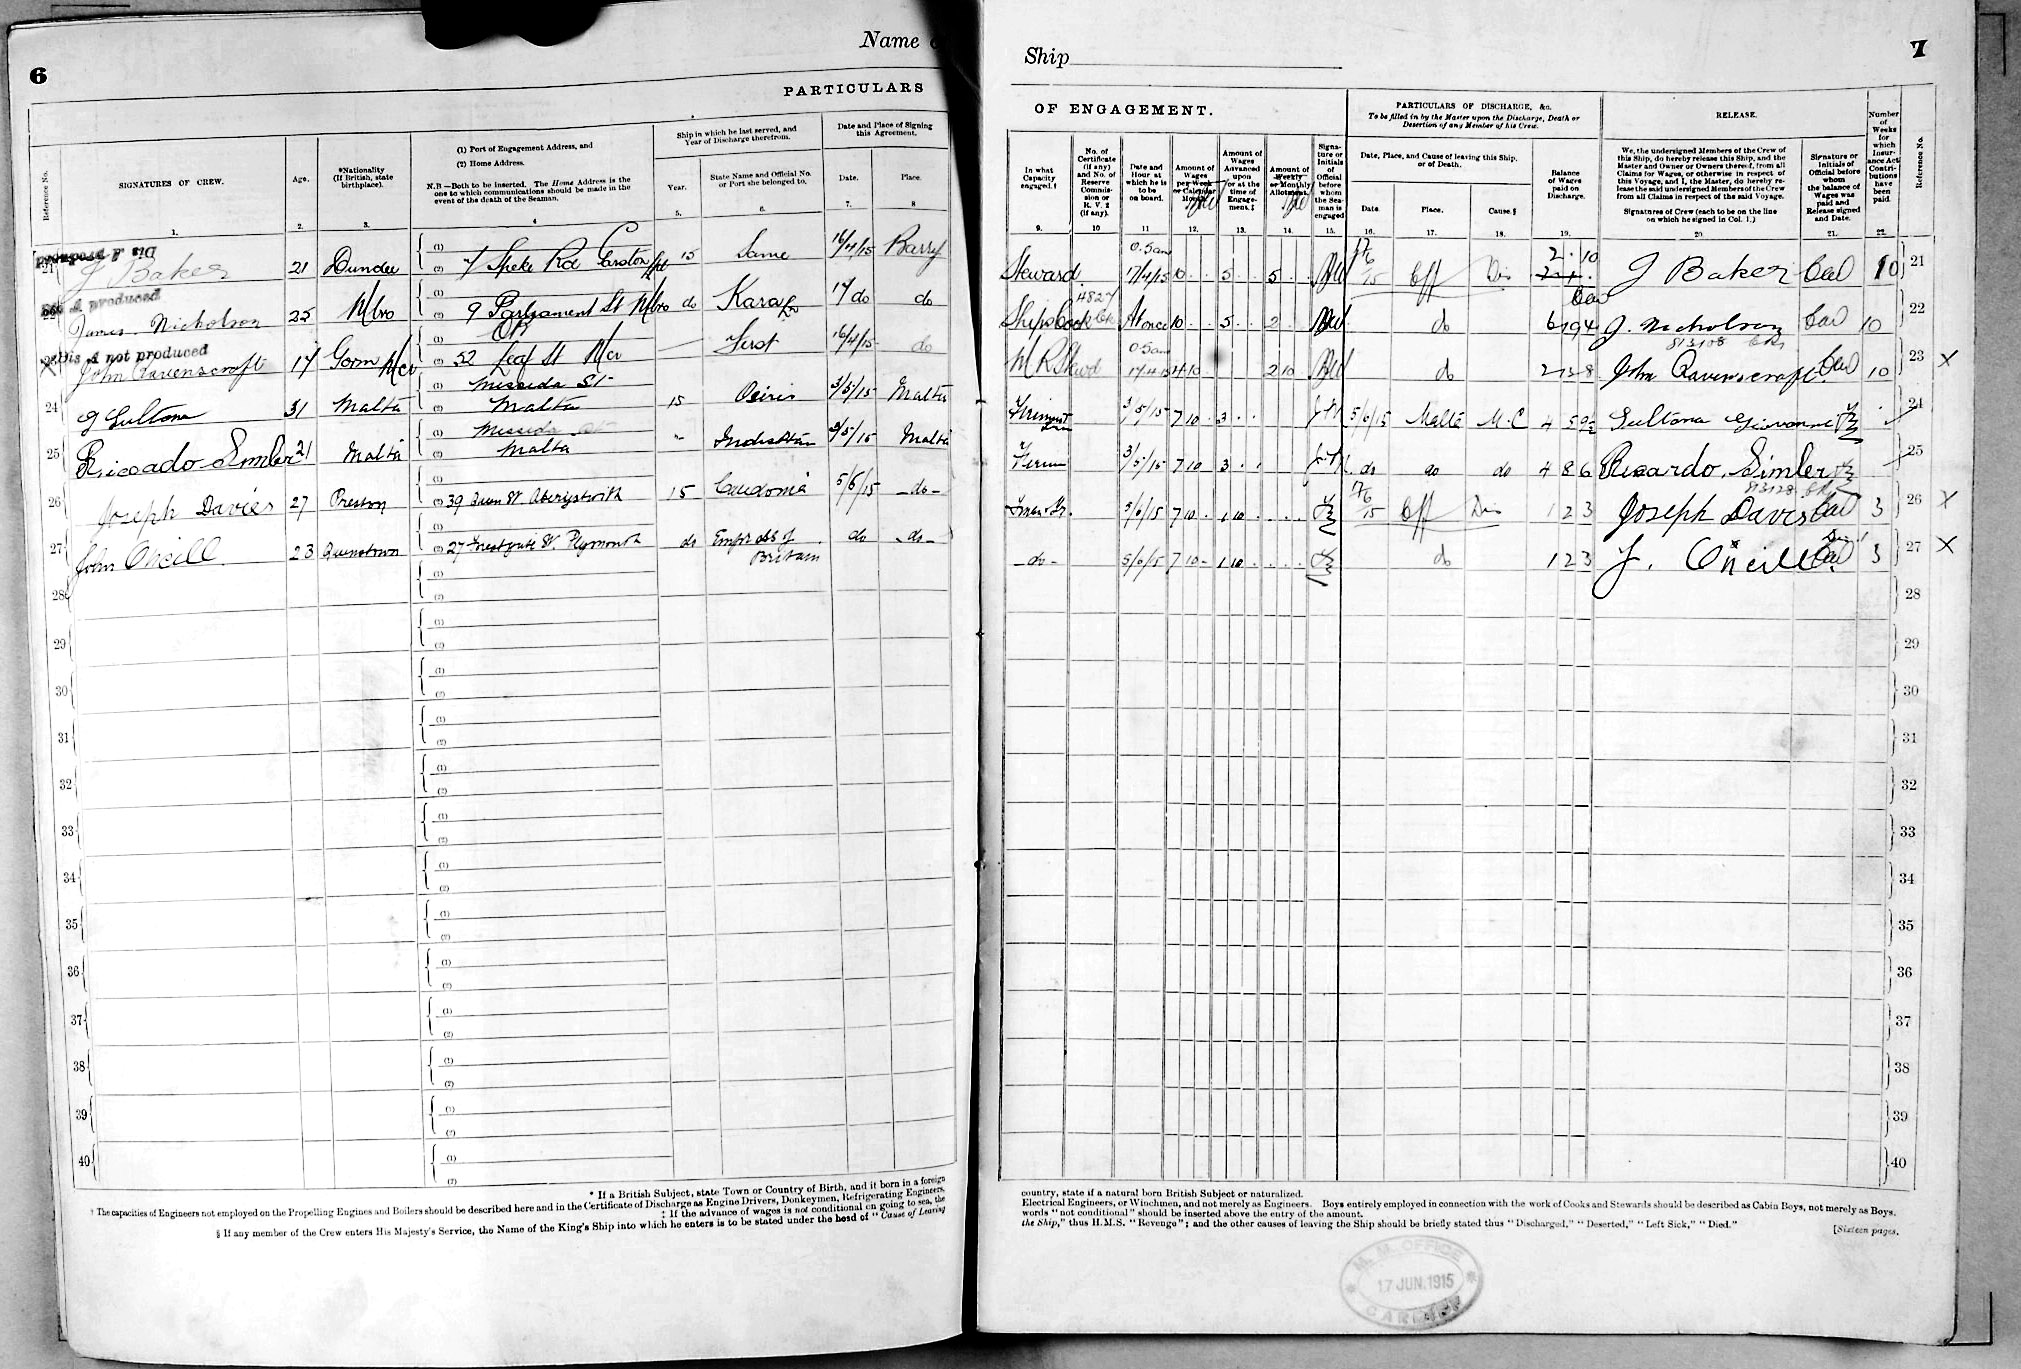 6
Name
PARTICULARS
Reference No.
SIGNATURES OF CREW.
Age.
*Nationality
(If British, state
birthplace).
(1) Port of Engagement Address, and
(2) Home Address.
N.B —Both to be inserted. The Home Address is the
one to which communications should be made in the
event of the death of the Seaman.
Ship in which he last served, and
Year of Discharge therefrom.
Year.
State Name and Official No.
or Port she belonged to.
Date and Place of Signing
this Agreement.
Date.
Place.
1.
2.
3.
4
5.
6.
7.
8
Dis. A produced
21 J Baker 21 Dundee 7 Speke Rd Garston 15 Same 16/4/15 Barry
Dis A produced
22 James Nicholson 25 M/bro 9 Parliament St M/bro do Kara 17 do do
Dis A not produced
23 John Ravenscroft 17 52 Leaf St First 16/4/15 do
24 G Sultana 31 Malta Missida St Malta 15 Osiris 3/5/15 Malta
25 Riccardo Simler 21 Malta Missida St Malta 3/5/15 Malta
26 Joseph Davies 27 Preston 39 Queen St. Aberystwith 15 Caledonia 5/6/15 -do-
27 John O'Neill 23 Queenstown 27 St. Plymouth do Empress of Britain do -do-
28
29
30
31
32
33
34
35
36
37
38
39
40
* If a British Subject, state Town or Country of Birth, and if born in a foreign
† The capacities of Engineers not employed on the Propelling Engines and Boilers should be described here and in the Certificate of Discharge as Engine Drivers, Donkeymen, Refrigerating Engineers,
‡ If the advance of wages is not conditional on going to sea, the
§ If any member of the Crew enters His Majesty's Service, the Name of the King's Ship into which he enters is to be stated under the head of "Cause of Leaving
Ship
7
OF ENGAGEMENT.
PARTICULARS OF DISCHARGE, &c.
To be filled in by the Master upon the Discharge, Death or
Desertion of any Member of his Crew.
RELEASE.
In what
Capacity
engaged.†
No. of
Certificate
(if any)
and No. of
Reserve
Commis-
sion or
R. V. 2
(if any).
Date and
Hour at
which he is
to be
on board.
Amount of
Wages
per Week
or Calendar
Month.
Amount of
Wages
Advanced
upon
or at the
time of
Engage-
ment.‡
Amount of
Weekly
or Monthly
Allotment.
Signa-
ture or
Initials
of
Official
before
whom
the Sea-
man is
engaged
Date, Place, and Cause of leaving this Ship,
or of Death.
Date.
Place.
Cause.§
Balance
of Wages
paid on
Discharge.
We, the undersigned Members of the Crew of
this Ship, do hereby release this Ship, and the
Master and Owner or Owners thereof, from all
Claims for Wages, or otherwise in respect of
this Voyage, and I, the Master, do hereby re-
lease the said undersigned Members of the Crew
from all Claims in respect of the said Voyage.
Signatures of Crew (each to be on the line
on which he signed in Col. 1.)
Signature or
Initials of
Official before
whom
the balance of
Wages was
paid and
Release signed
and Date.
Number
of
Weeks
for
which
Insur-
ance Act
Contri-
butions
have
been
paid.
Reference No.
9.
10
11
12.
13.
14.
15.
16.
17.
18.
19.
20.
21.
22.
Steward 17/4/15 10 5 5 17/6/15 Dis 2 10 J Baker 10 21
Ships Cook At once 10 5 2 do J. Nicholson 10 22
813108
do John Ravenscroft 10 23 X
3/5/15 7 10 3 5/6/15 Malta M.C 4 Sultana Giovanni 24
3/5/15 7 10 3 do do do 4 8 6 Riccardo Simler 25
813128
5/6/15 7 10 1 10 17/6/15 Dis 1 2 3 Joseph Davies 3 26 X
-do- 5/6/15 7 10 1 10 do 1 2 3 J. O'Neill 3 27 X
28
29
30
31
32
33
34
35
36
37
38
39
40
country, state if a natural born British Subject or naturalized.
Electrical Engineers, or Winchmen, and not merely as Engineers. Boys entirely employed in connection with the work of Cooks and Stewards should be described as Cabin Boys, not merely as Boys.
words "not conditional" should be inserted above the entry of the amount.
the Ship," thus H.M.S. "Revenge"; and the other causes of leaving the Ship should be briefly stated thus "Discharged," "Deserted," "Left Sick," "Died."
[Sixteen pages.
M. M. OFFICE
17 JUN. 1915
CARDIFF